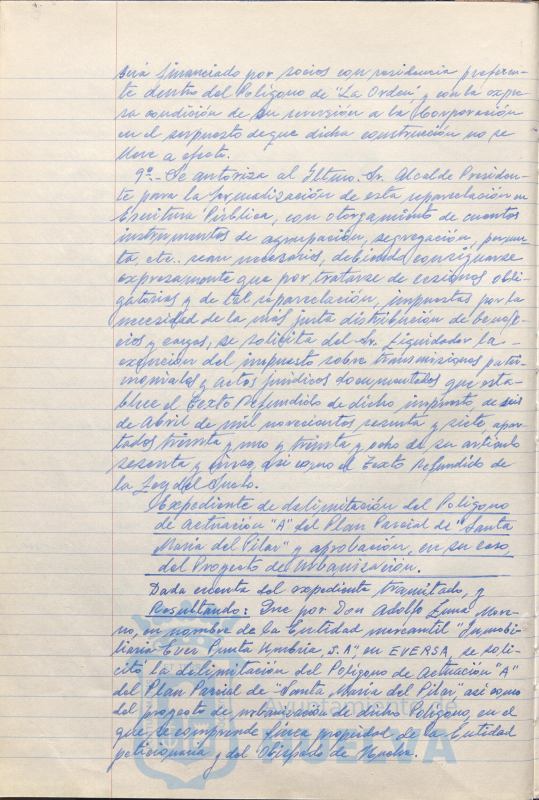 será financiado por socios con residencia preferen-
te dentro del Polígono de "La Orden", y con la expre-
sa condición de su reversión a la Corporación
en el supuesto de que dicha construcción no se
lleve a efecto.
9º.- Se autoriza al Iltmo. Sr. Alcalde Presiden-
te para la formalización de esta reparcelación en
Escritura Pública, con otorgamiento de cuantos
instrumentos de agrupación, segregación, permu-
ta, etc. sean necesarios, debiendo consignarse
expresamente que por tratarse de cesiones obli-
gatorias y de tal reparcelación, impuestas por la
necesidad de la más justa distribución de benefi-
cios y cargas, se solicita del Sr. Liquidador la
exención del impuesto sobre transmisiones patri-
moniales y actos jurídicos documentados que esta-
blece el Texto Refundido de dicho impuesto de seis
de Abril de mil novecientos sesenta y siete apar-
tados treinta y uno y treinta y ocho de su artículo
sesenta y cinco, así como el Texto Refundido de
la Ley del Suelo.
Expediente de delimitación del Polígono
de actuación "A" del Plan Parcial de "Santa
María del Pilar" y aprobación, en su caso,
del Proyecto de Urbanización.
Dada cuenta del expediente tramitado, y
Resultando: Que por Don Adolfo More-
no, en nombre de la Entidad mercantil "Inmobi-
liaria Ever Punta Umbría, S.A" en EVERSA, se soli-
citó la delimitación del Polígono de Actuación "A"
del Plan Parcial de "Santa María del Pilar" así como
del proyecto de urbanización de dicho Polígono, en el
que se comprende finca propiedad de la Entidad
peticionaria y del Obispado de Huelva.
Ayuntamiento de
HUELVA